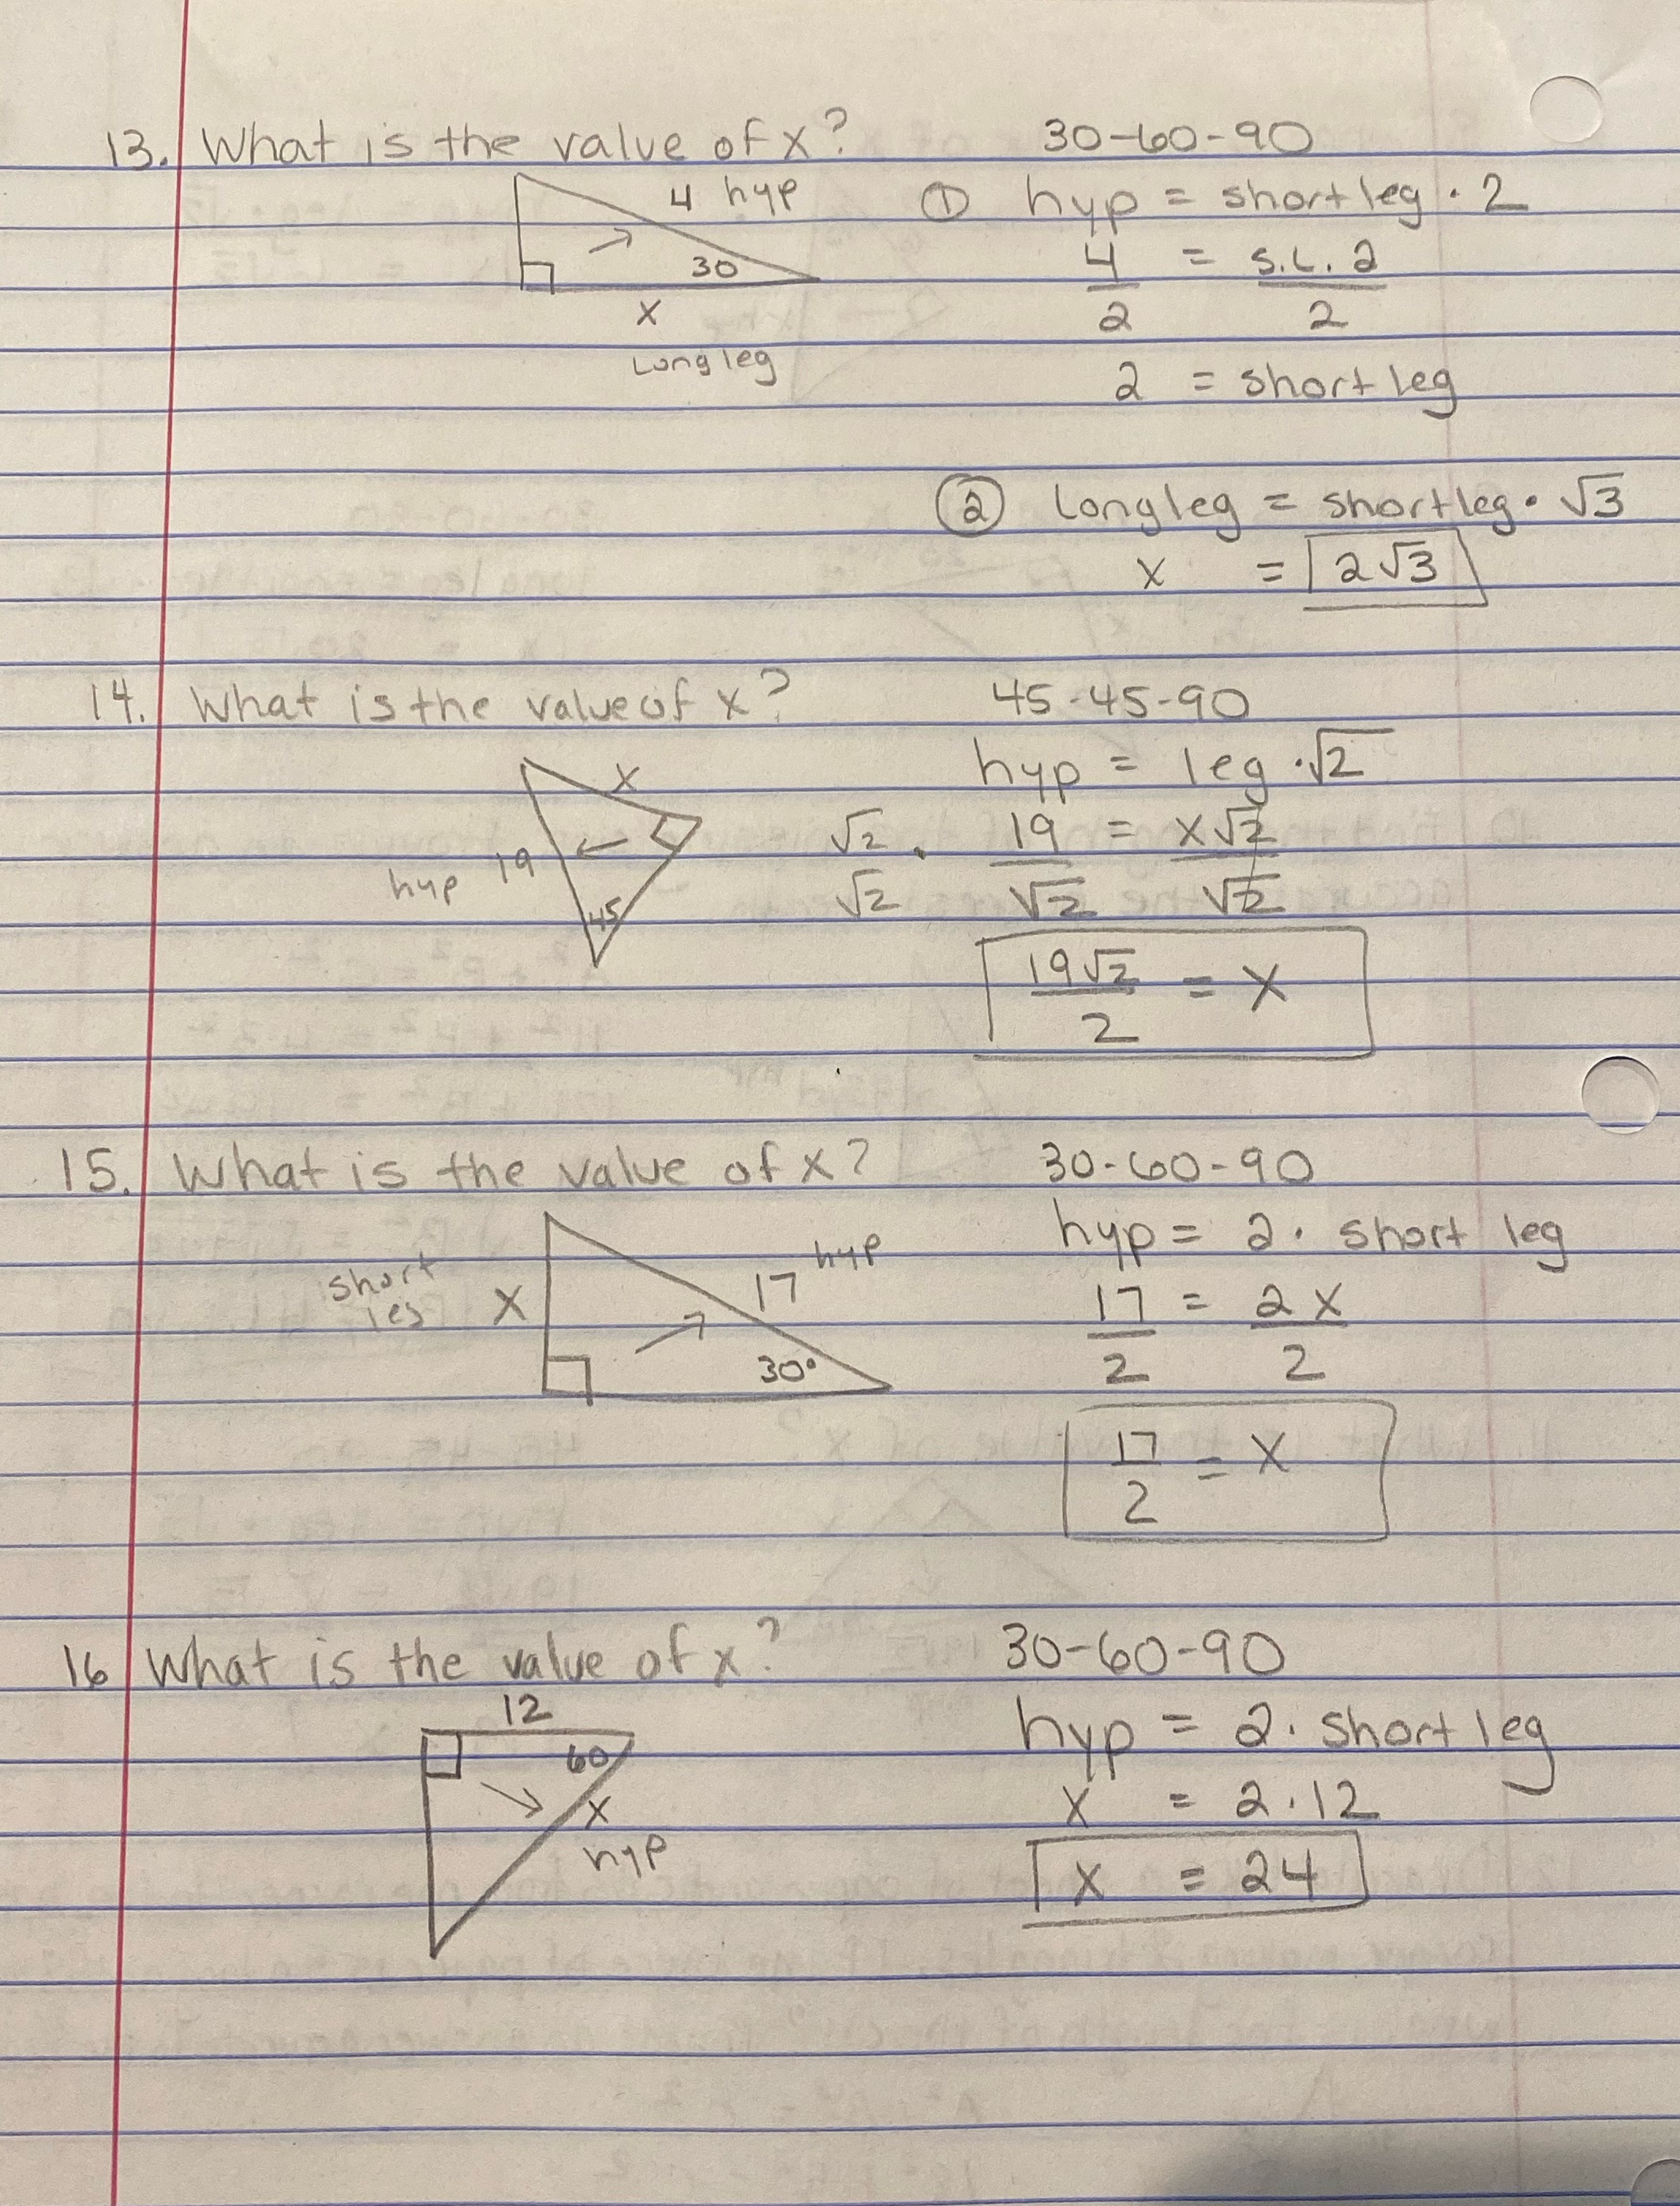 13. What is the value of x?
30-60-90
4 hyp
30
x
Long leg
① hyp = short leg · 2
4 = s.L. 2
2 2
2 = short leg
② Long leg = short leg · √3
x = 2√3
14. What is the value of x?
45-45-90
x
hyp 19
45
hyp = leg · √2
√2 · 19 = x√2
√2 √2 √2
19√2 = x
2
15. What is the value of x?
30-60-90
short
leg
x
17 hyp
30°
hyp = 2 · short leg
17 = 2x
2 2
17 = x
2
16 What is the value of x?
30-60-90
12
60
x
hyp
hyp = 2 · short leg
x = 2 · 12
x = 24